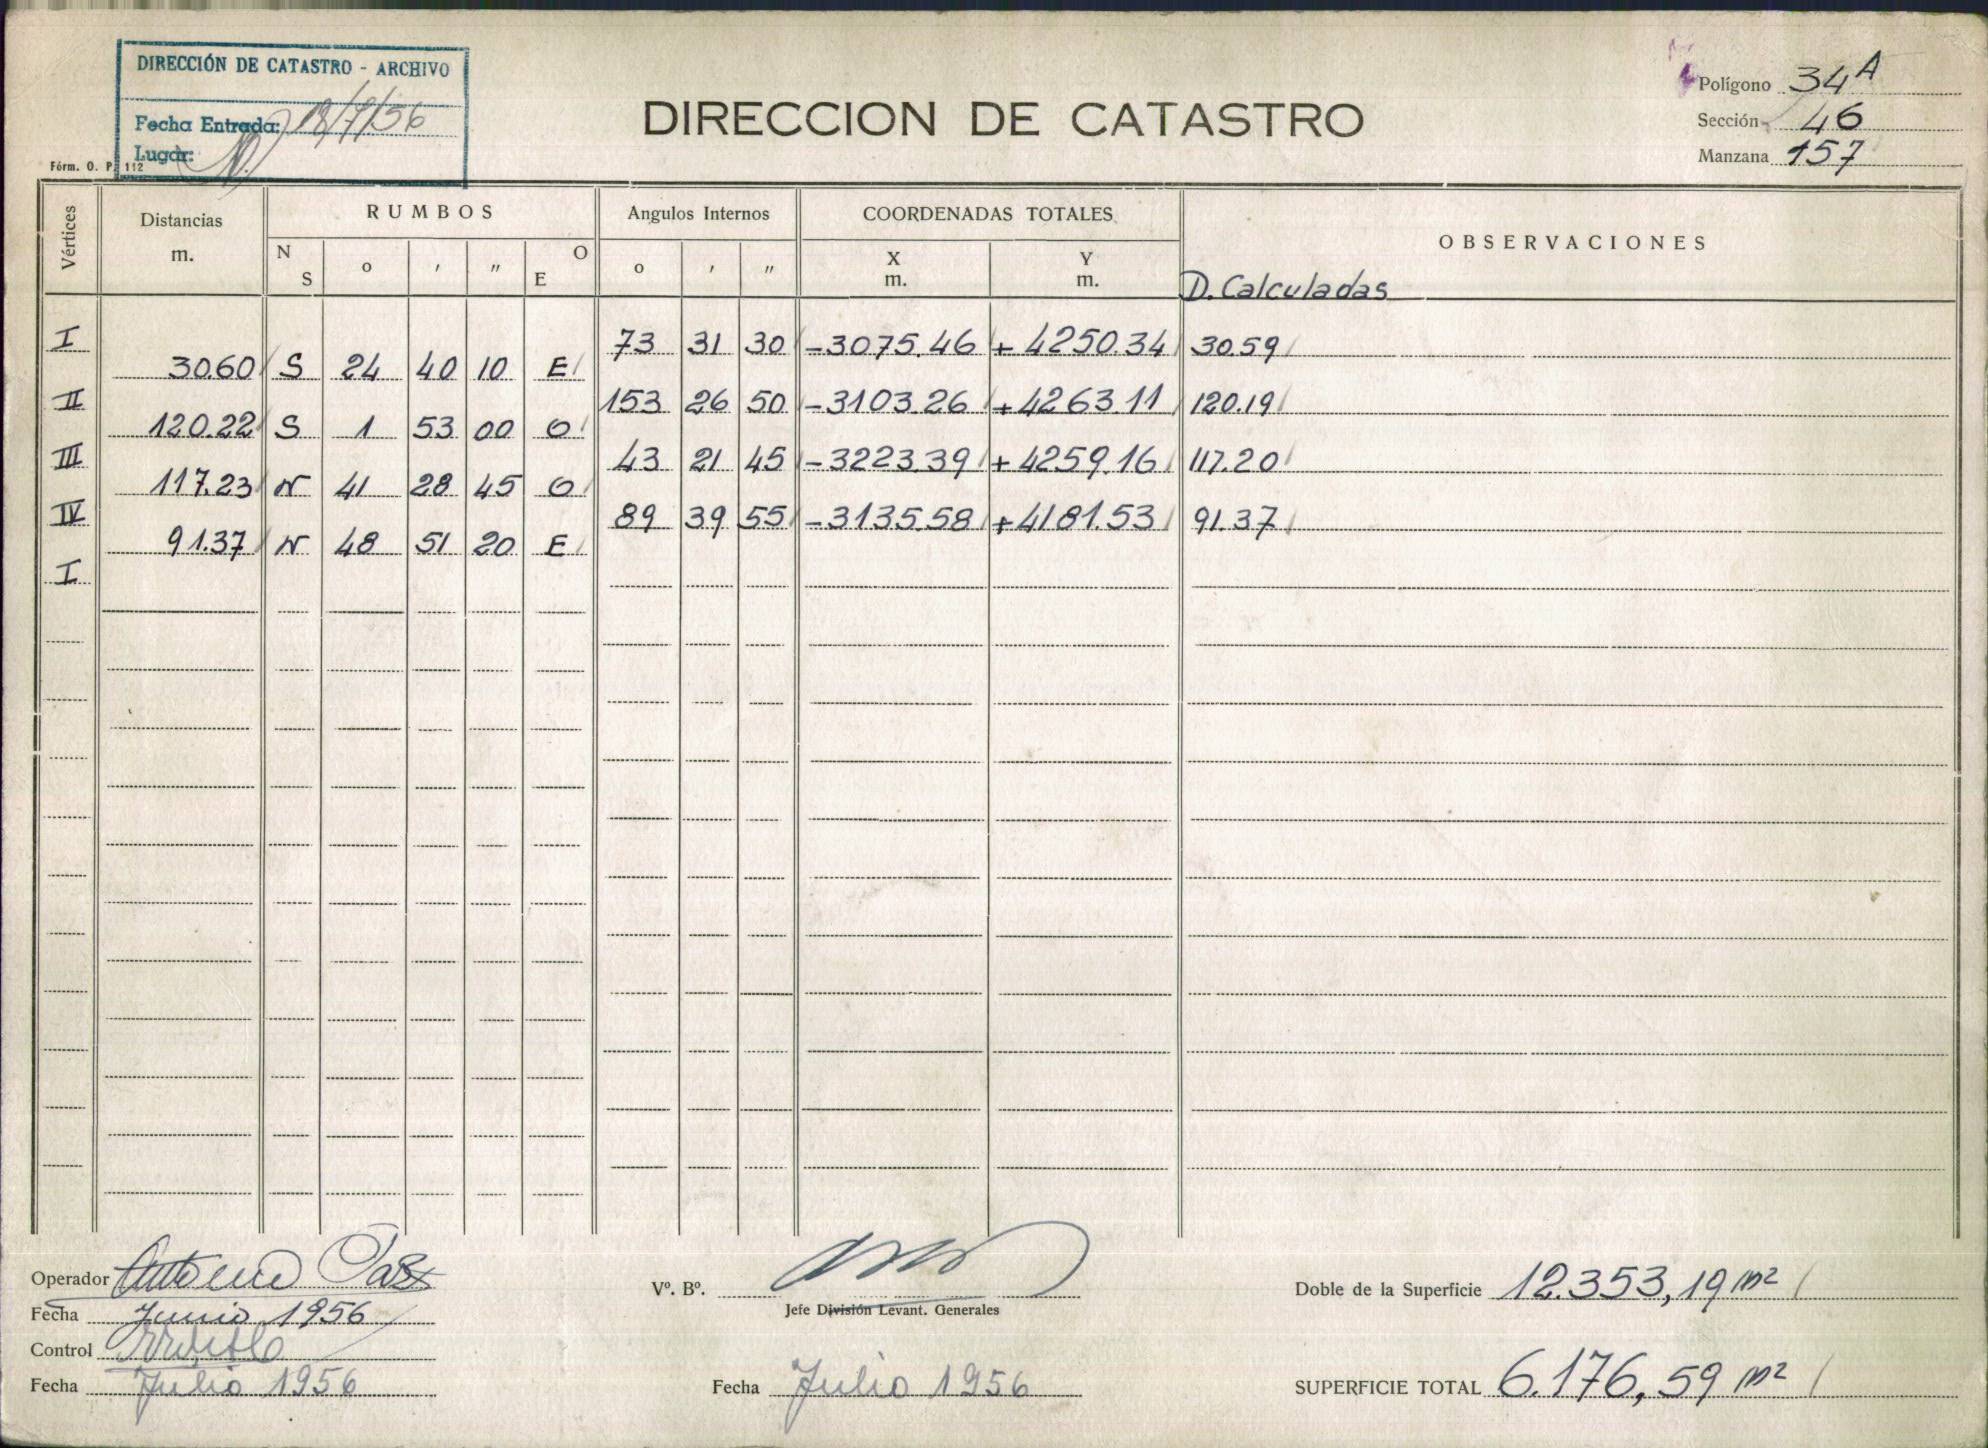 DIRECCIÓN DE CATASTRO - ARCHIVO
Fecha Entrada: 18/7/56
Lugar:
Fórm. O. P. 112
DIRECCION DE CATASTRO
Polígono 34 A
Sección 46
Manzana 157
Vértices Distancias m. RUMBOS Angulos Internos COORDENADAS TOTALES OBSERVACIONES
N S o ' " O E o ' " X m. Y m. D. Calculadas
I 73 31 30 -3075.46 + 4250.34 30.59
30.60 S 24 40 10 E
II 153 26 50 -3103.26 +4263.11 120.19
120.22 S 1 53 00 O
III 43 21 45 -3223.39 + 4259.16 117.20
117.23 N 41 28 45 O
IV 89 39 55 -3135.58 +4181.53 91.37
91.37 N 48 51 20 E
I
Operador
Fecha Junio 1956
Control
Fecha Julio 1956
Vº. Bº.
Jefe División Levant. Generales
Fecha Julio 1956
Doble de la Superficie 12.353,19 m²
SUPERFICIE TOTAL 6.176,59 m²